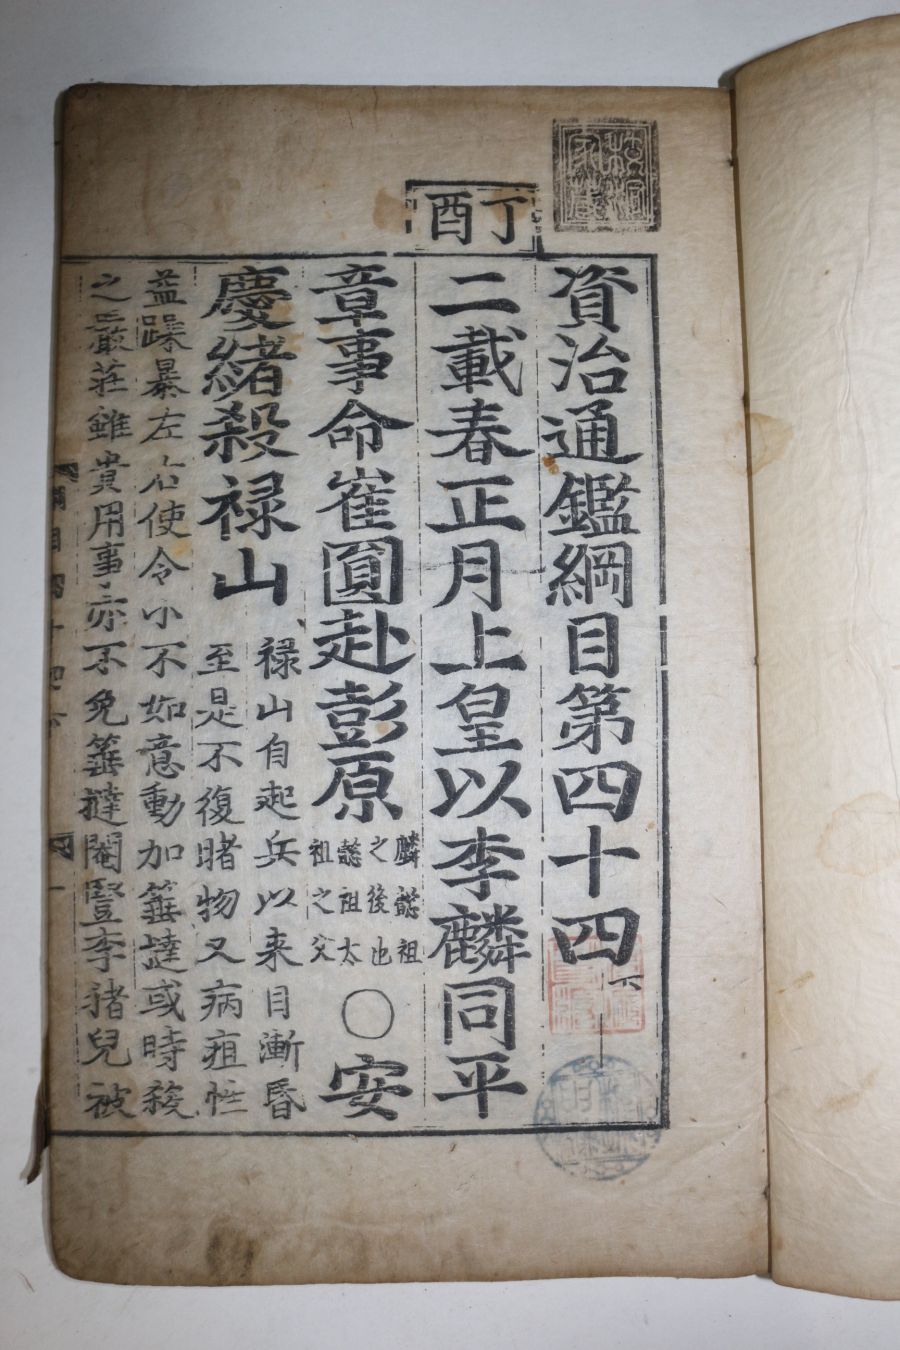 丁酉
資治通鑑綱目第四十四下
二載春正月上皇以李麟同平
章事命崔圓赴彭原
麟懿祖
之後也
懿祖太
祖之父
○安
慶緒殺祿山
祿山自起兵以来目漸昏
至是不復睹物又病疽性
益躁暴左右使令小不如意動加箠撻或時殺
之嚴莊雖貴用事亦不免箠撻閹豎李猪兒被